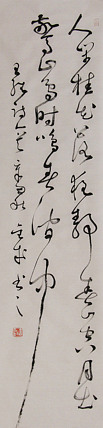 人閒桂花落夜靜春山空月出
驚山鳥時鳴春澗中
王維詩